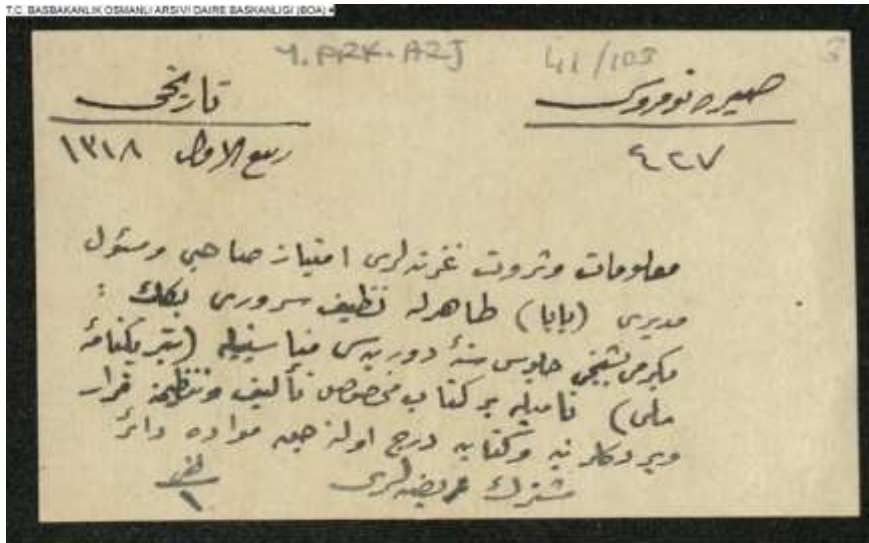 T.C. BASBAKANLIK OSMANLI ARSIVI DAIRE BASKANLIGI (BOA)
Y.PRK.AZJ 41/103
صيره نومروسى
تاريخى
٤٢٧
ربيع الاول ١٣١٨
معلومات وثروت غزته لرى امتياز صاحبى ومسئول
مديرى (بابا) طاهرله نظيف سرورى بكك :
يكرمى بشنجى جلوس سنۀ دوريه سى مناسبتيله (تبريكنامۀ
ملى) ناميله بر كتاب مخصوص تأليف وتنظيمنه قرار
ويردكلرينه وكتابه درج اولنه جق مواده دائر
مشترك عريضه لرى
لف
١